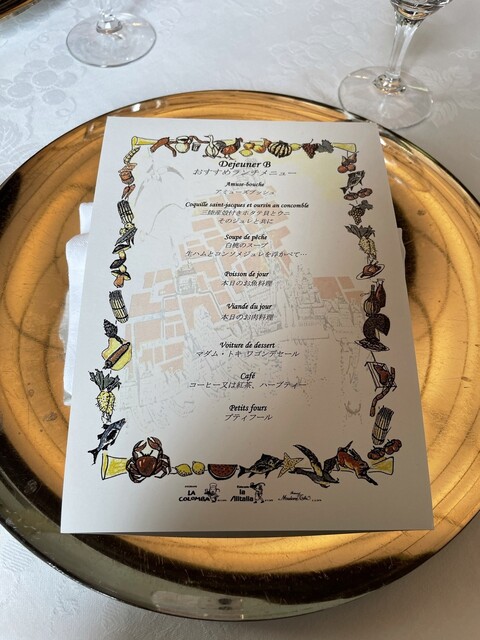 Dejeuner B
おすすめランチメニュー
Amuse-bouche
アミューズブッシュ
Coquille saint-jacques et oursin an concomble
三陸産殻付きホタテ貝とウニ
そのジュレと共に
Soupe de pêche
白桃のスープ
生ハムとコンソメジュレを浮かべて…
Poisson de jour
本日のお魚料理
Viande du jour
本日のお肉料理
Voiture de dessert
マダム・トキ ワゴンデセール
Café
コーヒー又は紅茶、ハーブティー
Petits fours
プティフール
LA COLOMBA
la Alitalia
Madame Toki